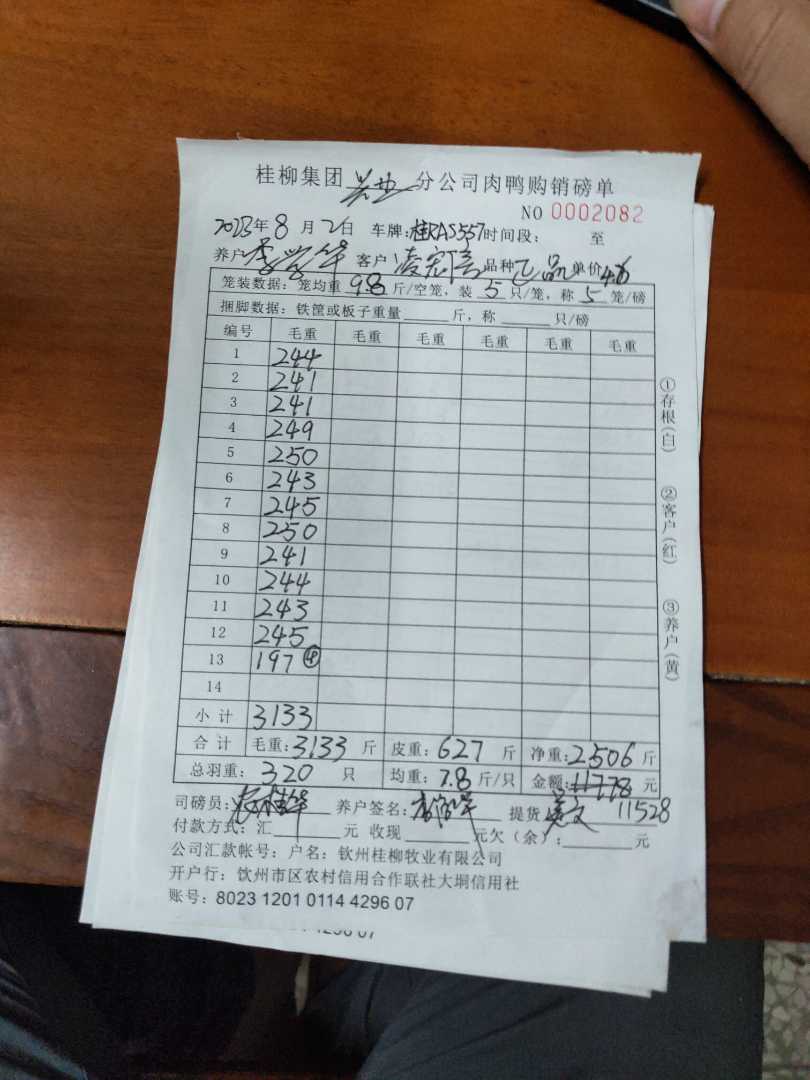 桂柳集团兴业分公司肉鸭购销磅单
NO 0002082
2023年8月21日 车牌:桂RAS557时间段: 至
养户 客户凌宏 品种 品 单价4.6
笼装数据: 笼均重9.8斤/空笼, 装5只/笼, 称5笼/磅
捆脚数据: 铁筐或板子重量 斤, 称 只/磅
编号 毛重 毛重 毛重 毛重 毛重 毛重
1 244
2 241
3 241
4 249
5 250
6 243
7 245
8 250
9 241
10 244
11 243
12 245
13 197 ④
14
小计 3133
合计 毛重:3133斤 皮重:627斤 净重:2506斤
总羽重:320只 均重:7.8斤/只 金额:11778元
司磅员: 养户签名: 提货 11528
付款方式: 汇 元 收现 元欠(余): 元
公司汇款帐号: 户名: 钦州桂柳牧业有限公司
开户行: 钦州市区农村信用合作联社大垌信用社
账号: 8023 1201 0114 4296 07
①存根(白) ②客户(红) ③养户(黄)
4296 07